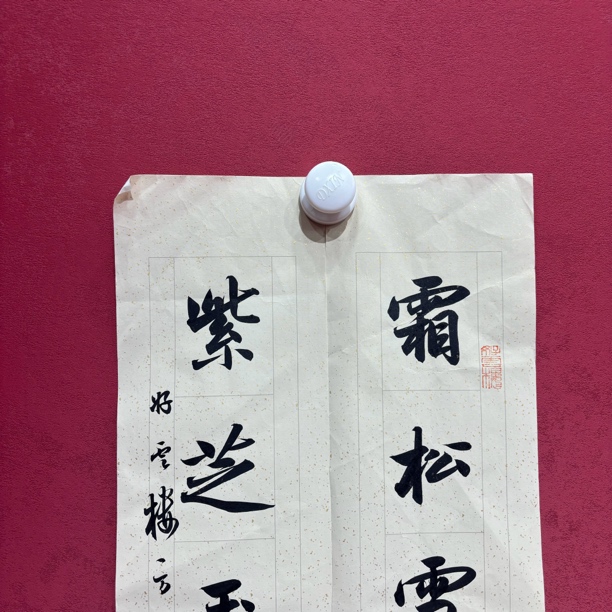 霜松雪
紫芝玉
好雲樓一方